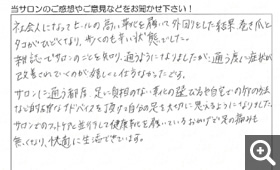 当サロンのご感想やご意見などをお聞かせ下さい!
社会人になってヒールの高い靴を履いて外回りをした結果、巻き爪と
タコがひどくなり、歩くのも辛い状態でした。
雑誌でサロンのことを知り、通うようになりましたが、通う度に症状が
改善されていくのが嬉しくて仕方なかったです。
サロンに通う都度、足に負担のない靴の選び方や自宅での外の方法
など的確なアドバイスを頂き自分の足を大切に思えるようになりました。
サロンでのフットケアと並行して健康靴を履いているおかげで足の痛みも
無くなり、快適に生活できています。